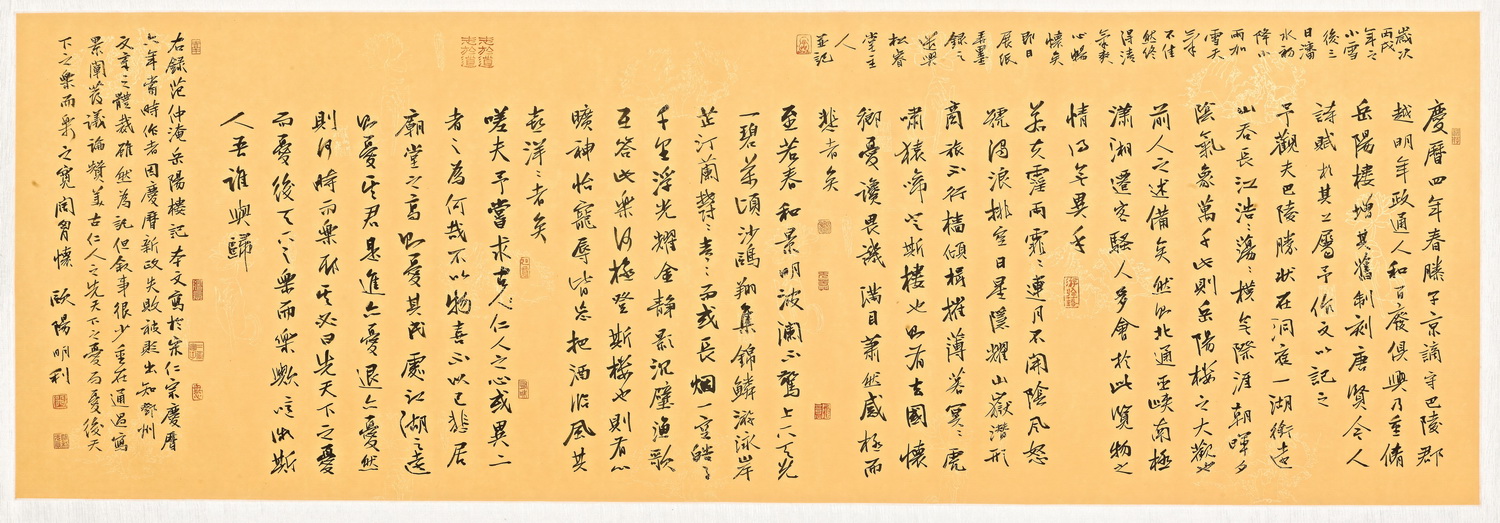 歲次
丙戌
年之
小雪
後三
日瀋
水初
降小
雨加
雪天
不佳
然終
得潔
氣爽
心暢
懷矣
即日
展紙
弄墨
錄之
松睿
堂主
人
並記
慶曆四年春滕子京謫守巴陵郡
越明年政通人和百廢俱興乃重脩
岳陽樓增其舊制刻唐賢今人
詩賦於其上屬予作文以記之
予觀夫巴陵勝狀在洞庭一湖銜遠
山吞長江浩〻蕩〻橫無際涯朝暉夕
陰氣象萬千此則岳陽樓之大觀也
前人之述備矣然則北通巫峽南極
瀟湘遷客騷人多會於此覽物之
情得無異乎
若夫霪雨霏〻連月不開陰風怒
號濁浪排空日星隱耀山嶽潛形
商旅不行檣傾楫摧薄暮冥〻虎
嘯猿啼登斯樓也則有去國懷
鄉憂讒畏譏滿目蕭然感極而
悲者矣
至若春和景明波瀾不驚上下天光
一碧萬頃沙鷗翔集錦鱗游泳岸
芷汀蘭鬱〻青〻而或長烟一空皓月
千里浮光耀金靜影沉璧漁歌
互答此樂何極登斯樓也則有心
曠神怡寵辱皆忘把酒臨風其
喜洋〻者矣
嗟夫予嘗求古人仁人之心或異二
者之為何哉不以物喜不以己悲居
廟堂之高則憂其民處江湖之遠
則憂其君是進亦憂退亦憂然
則何時而樂耶其必曰先天下之憂
而憂後天下之樂而樂歟噫微斯
人吾誰與歸
右錄范仲淹岳陽樓記本文寫於宋仁宗慶曆
六年當時作者因慶曆新政失敗被貶出知鄧州
文章之體裁確然為記但敘事很少重在通過寫
景闡發議論贊美古仁人之先天下之憂而憂後天
下之樂而樂之寬闊胸懷 歐陽明利